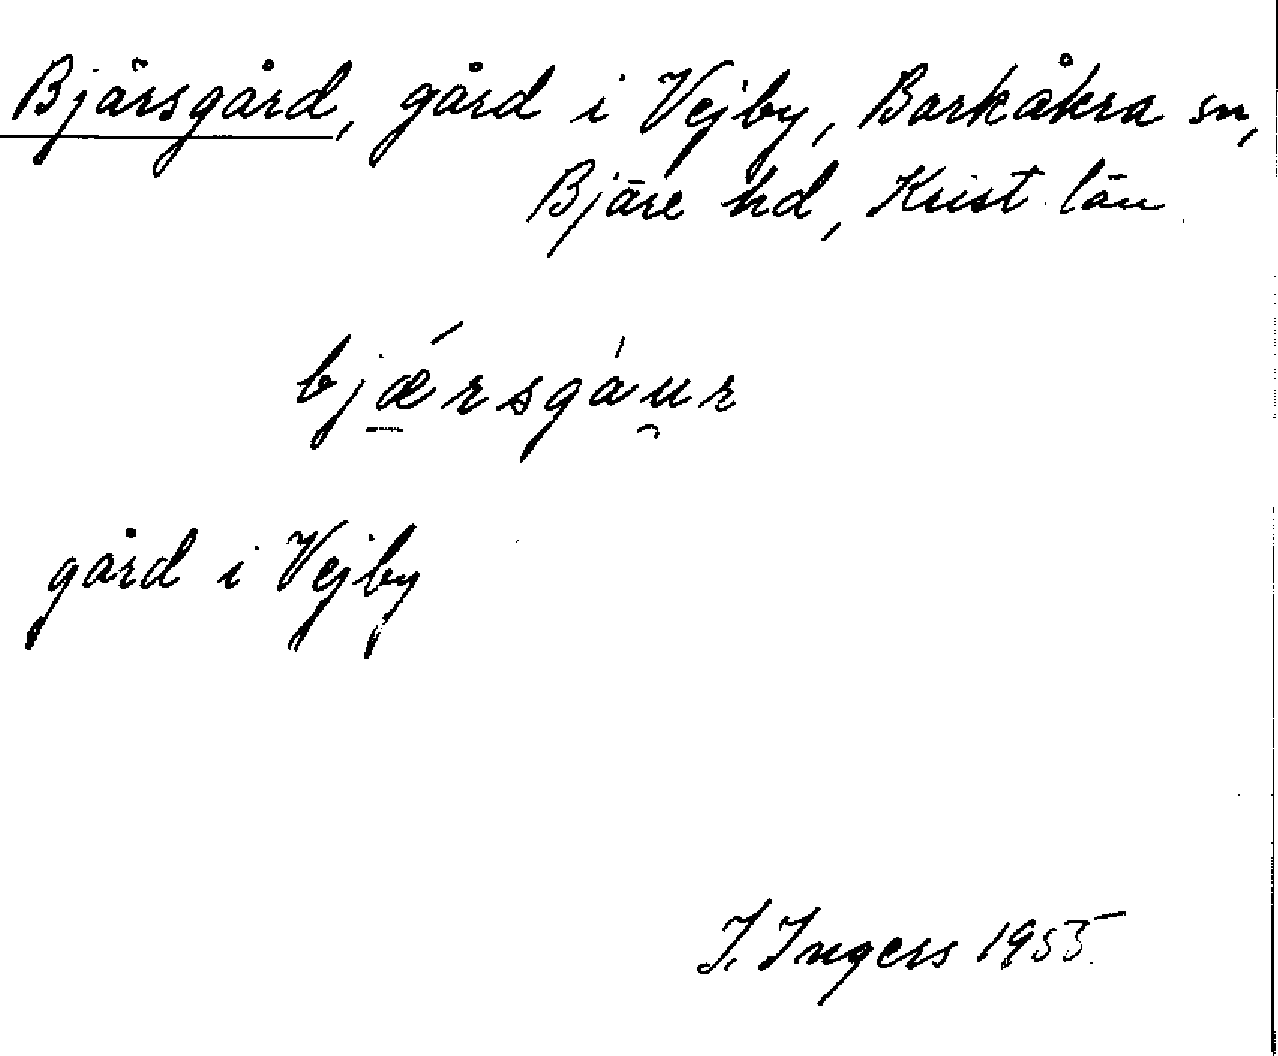 Bjärsgård, gård i Vejby, Barkåkra sn,
Bjäre hd, Krist. län.
bjǽ̱rsgáu̯r
gård i Vejby
I. Ingers 1955.